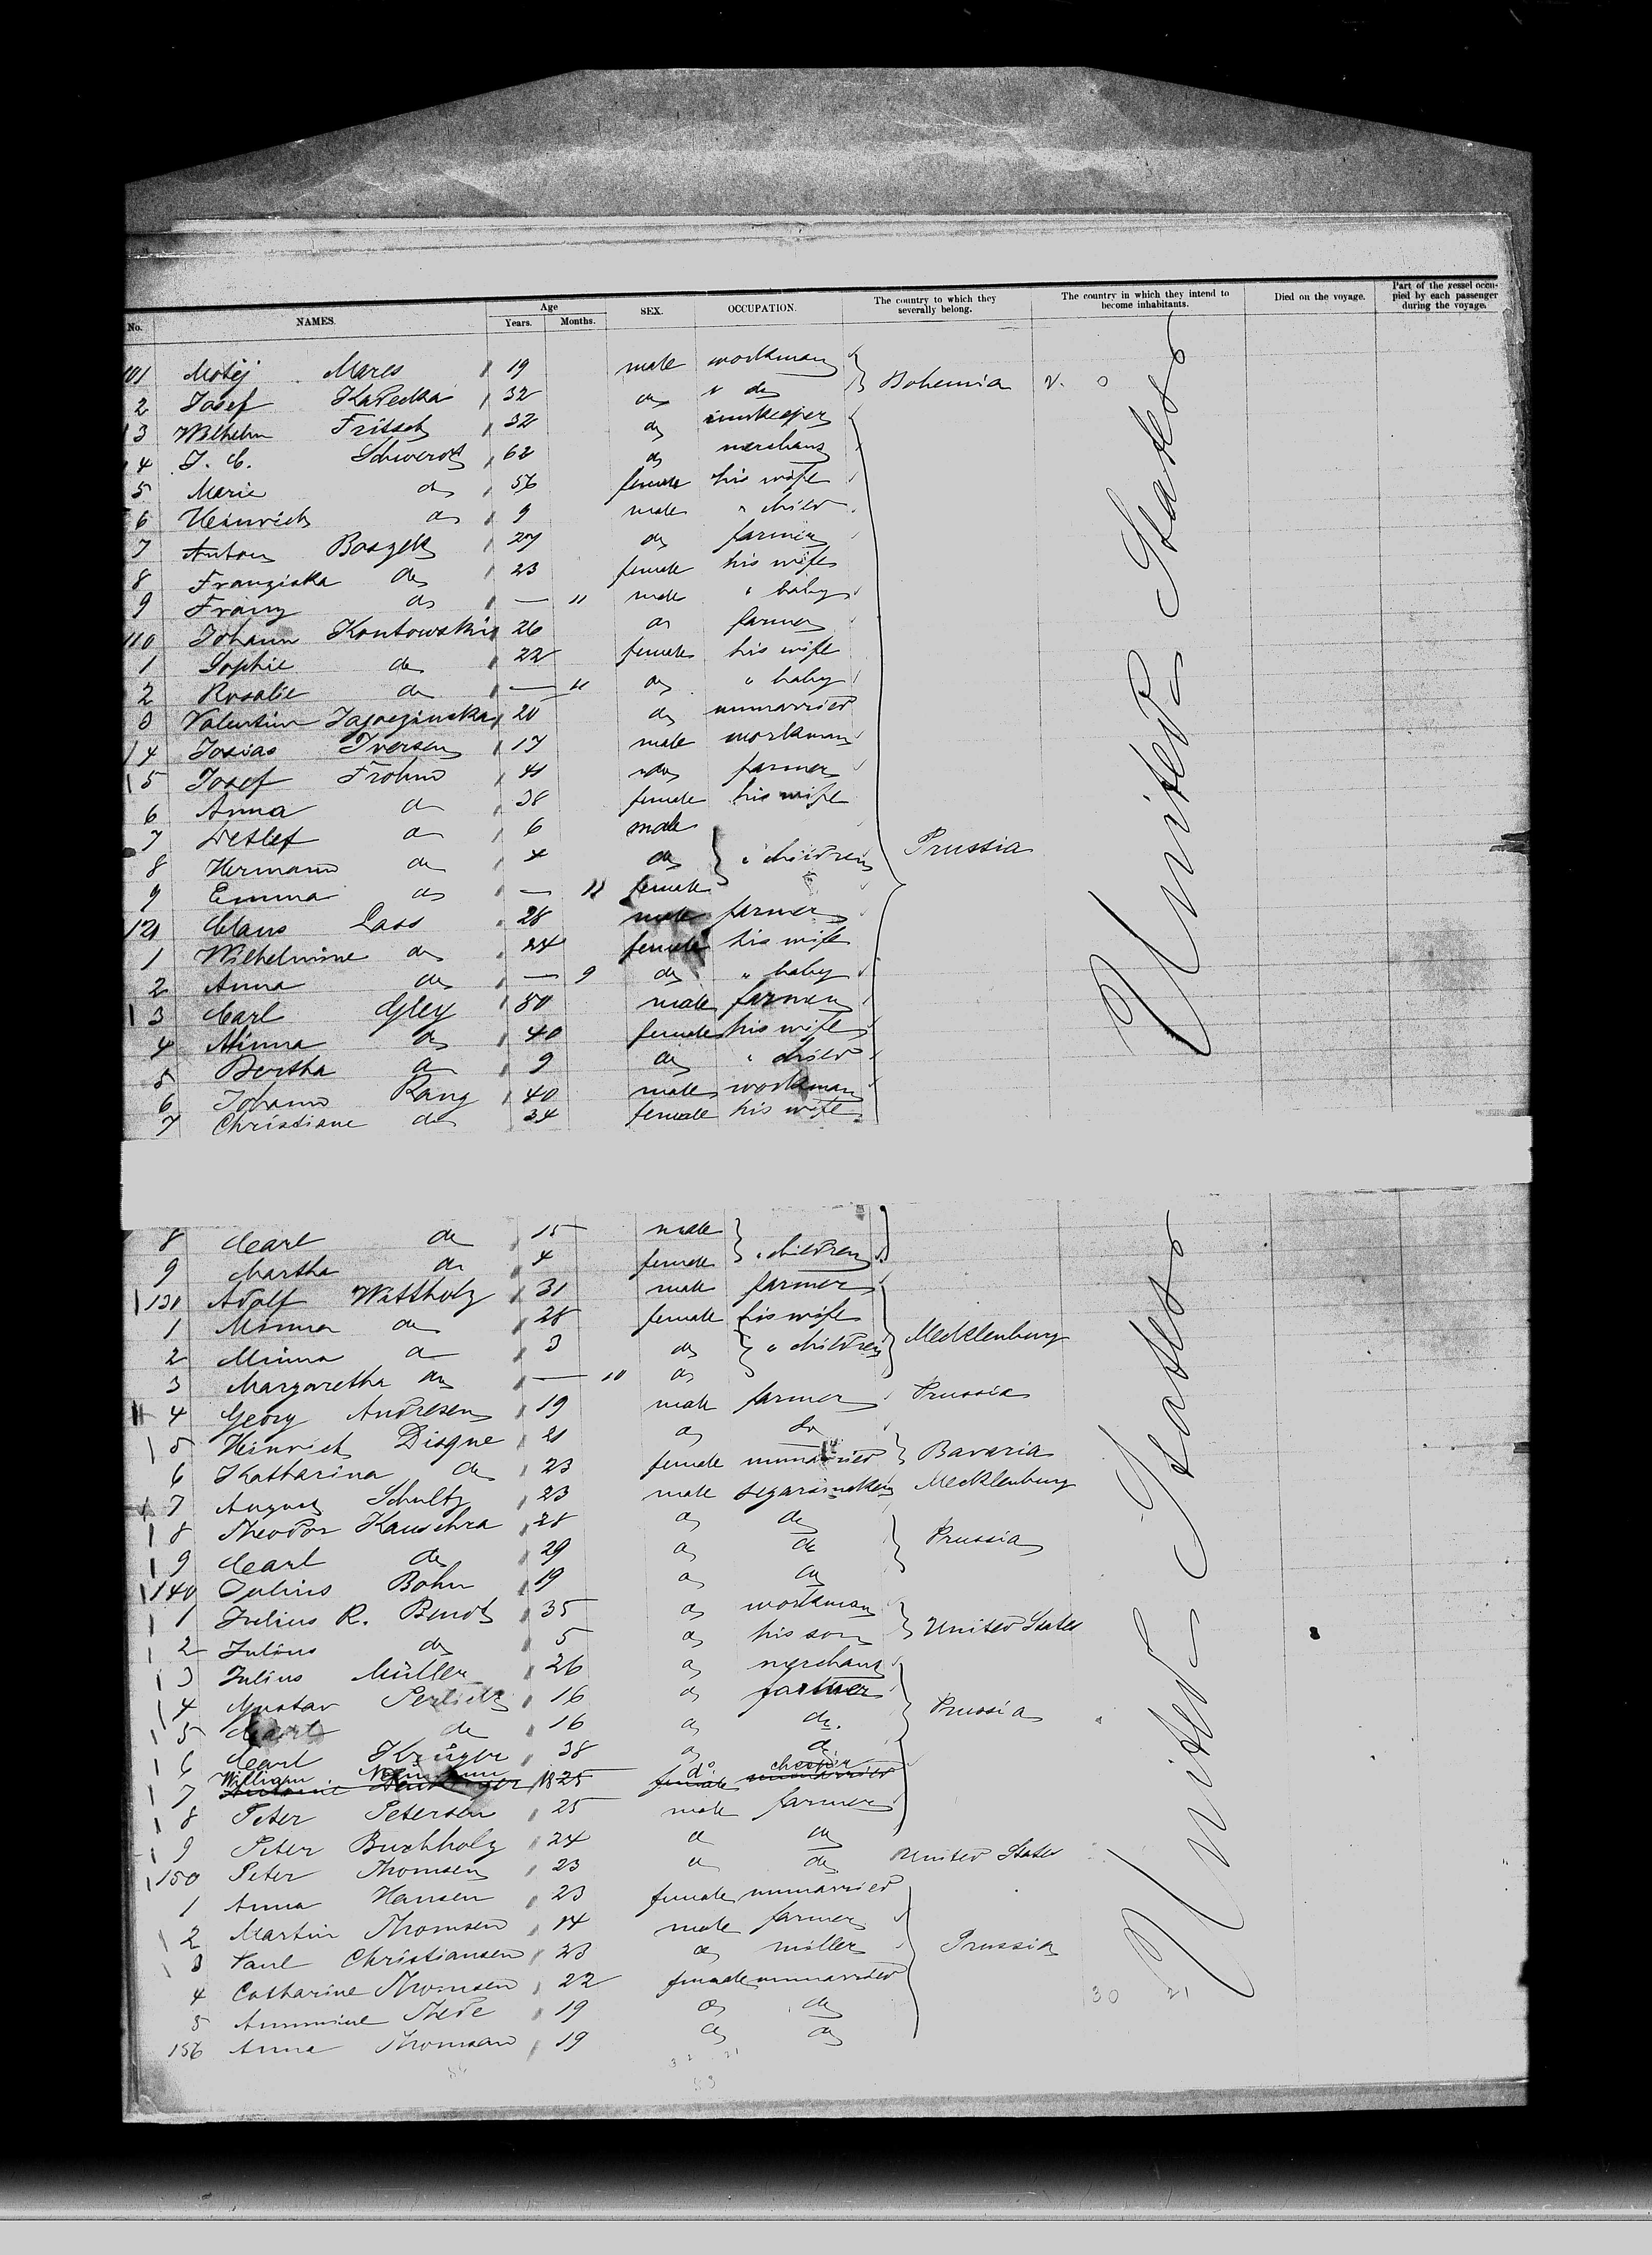 No. NAMES. Age Years. Months. SEX. OCCUPATION. The country to which they severally belong. The country in which they intend to become inhabitants. Died on the voyage. Part of the vessel occupied by each passenger during the voyage.
101 Motéj Mares 19 male workman Bohemia
2 Josef 32 do do
3 Wilhelm Fritsch 32 do innkeeper
4 J. C. Schwerdt 62 do merchant
5 Marie do 56 female his wife
6 Heinrich do 9 male " child
7 Anton 27 do farmer
8 Franziska do 23 female his wife
9 Franz do — 11 male " baby
110 Johann Kontowski 26 do farmer
1 Sophie do 22 female his wife
2 Rosalie do — 11 do " baby
3 Valentin 20 do unmarried
4 Josias Iversen 17 male workman
5 Josef Frohm 41 do farmer
6 Anna do 38 female his wife
7 Detlef do 6 male
8 Hermann do 4 do " children Prussia
9 Emma do — 11 female
120 Claus Lass 28 male farmer
1 Wilhelmine do 24 female his wife
2 Anna do — 9 do " baby
3 Carl Gley 50 male farmer
4 Minna do 40 female his wife
5 Bertha do 9 do " child
6 Johann Rang 40 male workman
7 Christiane do 34 female his wife
United States
8 Carl do 15 male
9 Martha do 4 female " children
130 Adolf Wittholz 31 male farmer
1 Minna do 28 female his wife
2 Minna do 3 do " children Mecklenburg
3 Margaretha do — 10 do
4 Georg Andresen 19 male farmer Prussia
5 Heinrich Disque 21 do do
6 Katharina do 23 female unmarried Bavaria
7 August Schultz 23 male segarsmaker Mecklenburg
8 Theodor Kauschra 28 do do
9 Carl do 29 do do Prussia
140 Julius Bohn 19 do do
1 Julius R. Bendt 35 do workman
2 Julius do 5 do his son United States
3 Julius Müller 26 do merchant
4 Gustav 16 do farmer
5 Carl do 16 do do. Prussia
6 Carl Krüger 38 do do
7 William 25 do
8 Peter Petersen 25 male farmer
9 Peter Buchholz 24 do do
150 Peter Thomsen 23 do do United States
1 Anna Hansen 23 female unmarried
2 Martin Thomsen 14 male farmer
3 Paul Christiansen 23 do miller Prussia
4 Catharine Thomsen 22 female unmarried
5 Thede 19 do do
156 Anna Thomsen 19 do do
United States
30 21